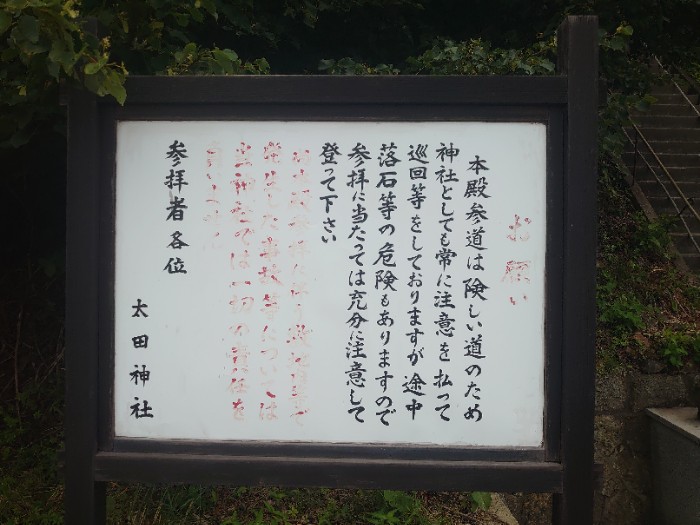 お願い
本殿参道は険しい道のため
神社としても常に注意を払って
巡回等をしておりますが途中
落石等の危険もありますので
参拝に当たっては充分に注意して
登って下さい
発生した事故等については
当神社では一切の責任を
参拝者各位
太田神社